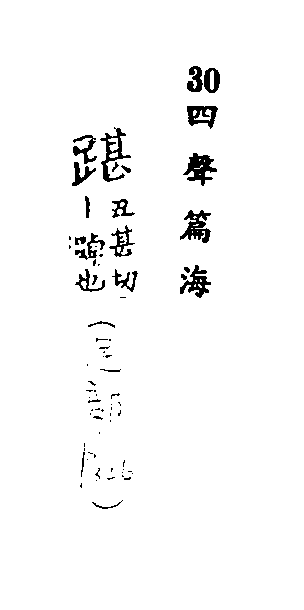 30四聲篇海
踸
丑甚切
丨踔也
(足部